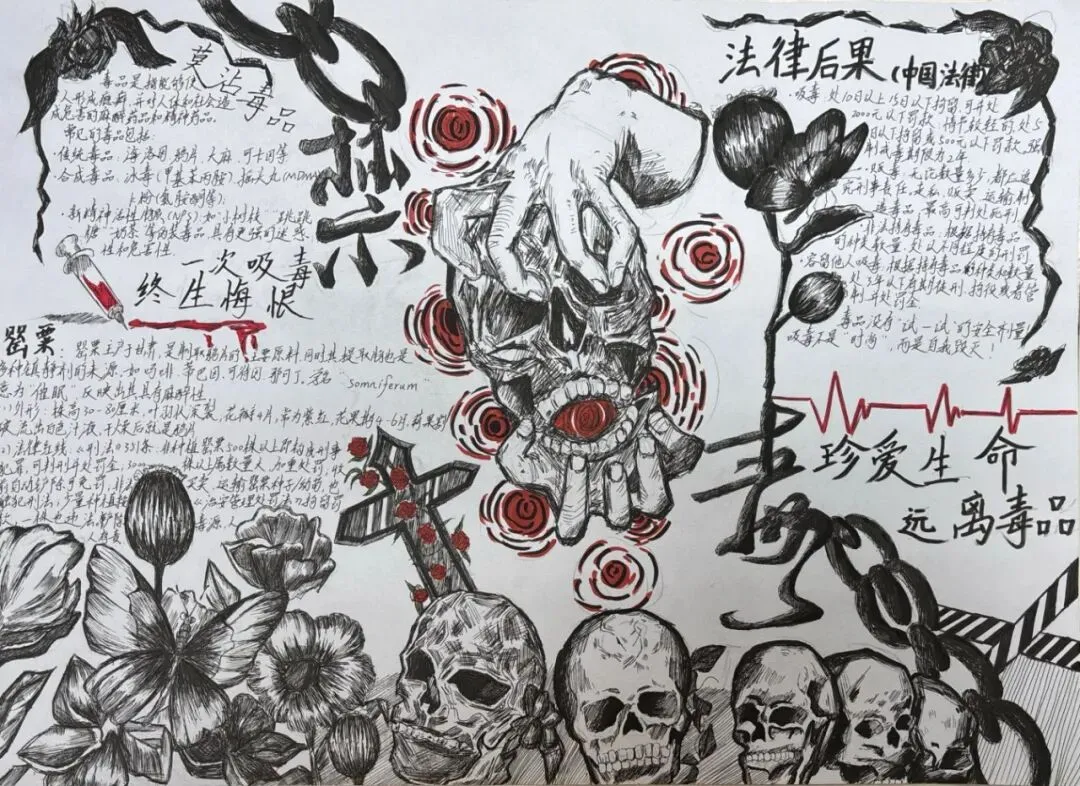 莫沾毒品
毒品是指能够使
人形成瘾癖,并对人体和社会造
成危害的麻醉药品和精神药品。
常见的毒品包括:
·传统毒品:海洛因、鸦片、大麻、可卡因等
·合成毒品:冰毒(甲基苯丙胺)、摇头丸(MDMA)
K粉(氯胺酮等)
·新精神活性物质(NPS):如"小树枝""跳跳
糖""奶茶"等伪装毒品,具有更强的迷惑
性和危害性
一次吸毒
终生悔恨
罂粟:罂粟主产于甘肃,是制取鸦片的主要原料,同时其提取物也是
多种镇静剂的来源,如吗啡、蒂巴因、可待因、那可丁。学名"somniferum"
意为"催眠",反映出其具有麻醉性
(1)外形:株高30-80厘米,叶羽状深裂,花瓣4片,常为紫红,花果期4-6月,蒴果割
破流出白色汁液,干燥后就是鸦片
(2)法律红线:《刑法》351条:非法种植罂粟500株以上即构成刑事
犯罪,可判刑并处罚金,3000株以上属数量大,加重处罚,收
运输罂粟种子/幼苗,也
触犯刑法;少量种植
《治安管理处罚法》拘留罚
禁
毒
法律后果(中国法律)
·吸毒:处10日以上15日以下拘留,可并处
2000元以下罚款;情节较轻的处5
日以下拘留或500元以下罚款,强
制戒毒期限为2年
·贩毒:无论数量多少,都应追
究刑事责任,走私、贩卖、运输、制
造毒品,最高可判处死刑
·非法持有毒品:根据持有毒品
的种类和数量,处以不同程度的刑罚
·容留他人吸毒:根据持有毒品的种类和数量
处3年以下有期徒刑、拘役或者管
制,并处罚金
毒品没有"试一试"的安全剂量!
吸毒不是"时尚",而是自我毁灭!
珍爱生命
远离毒品